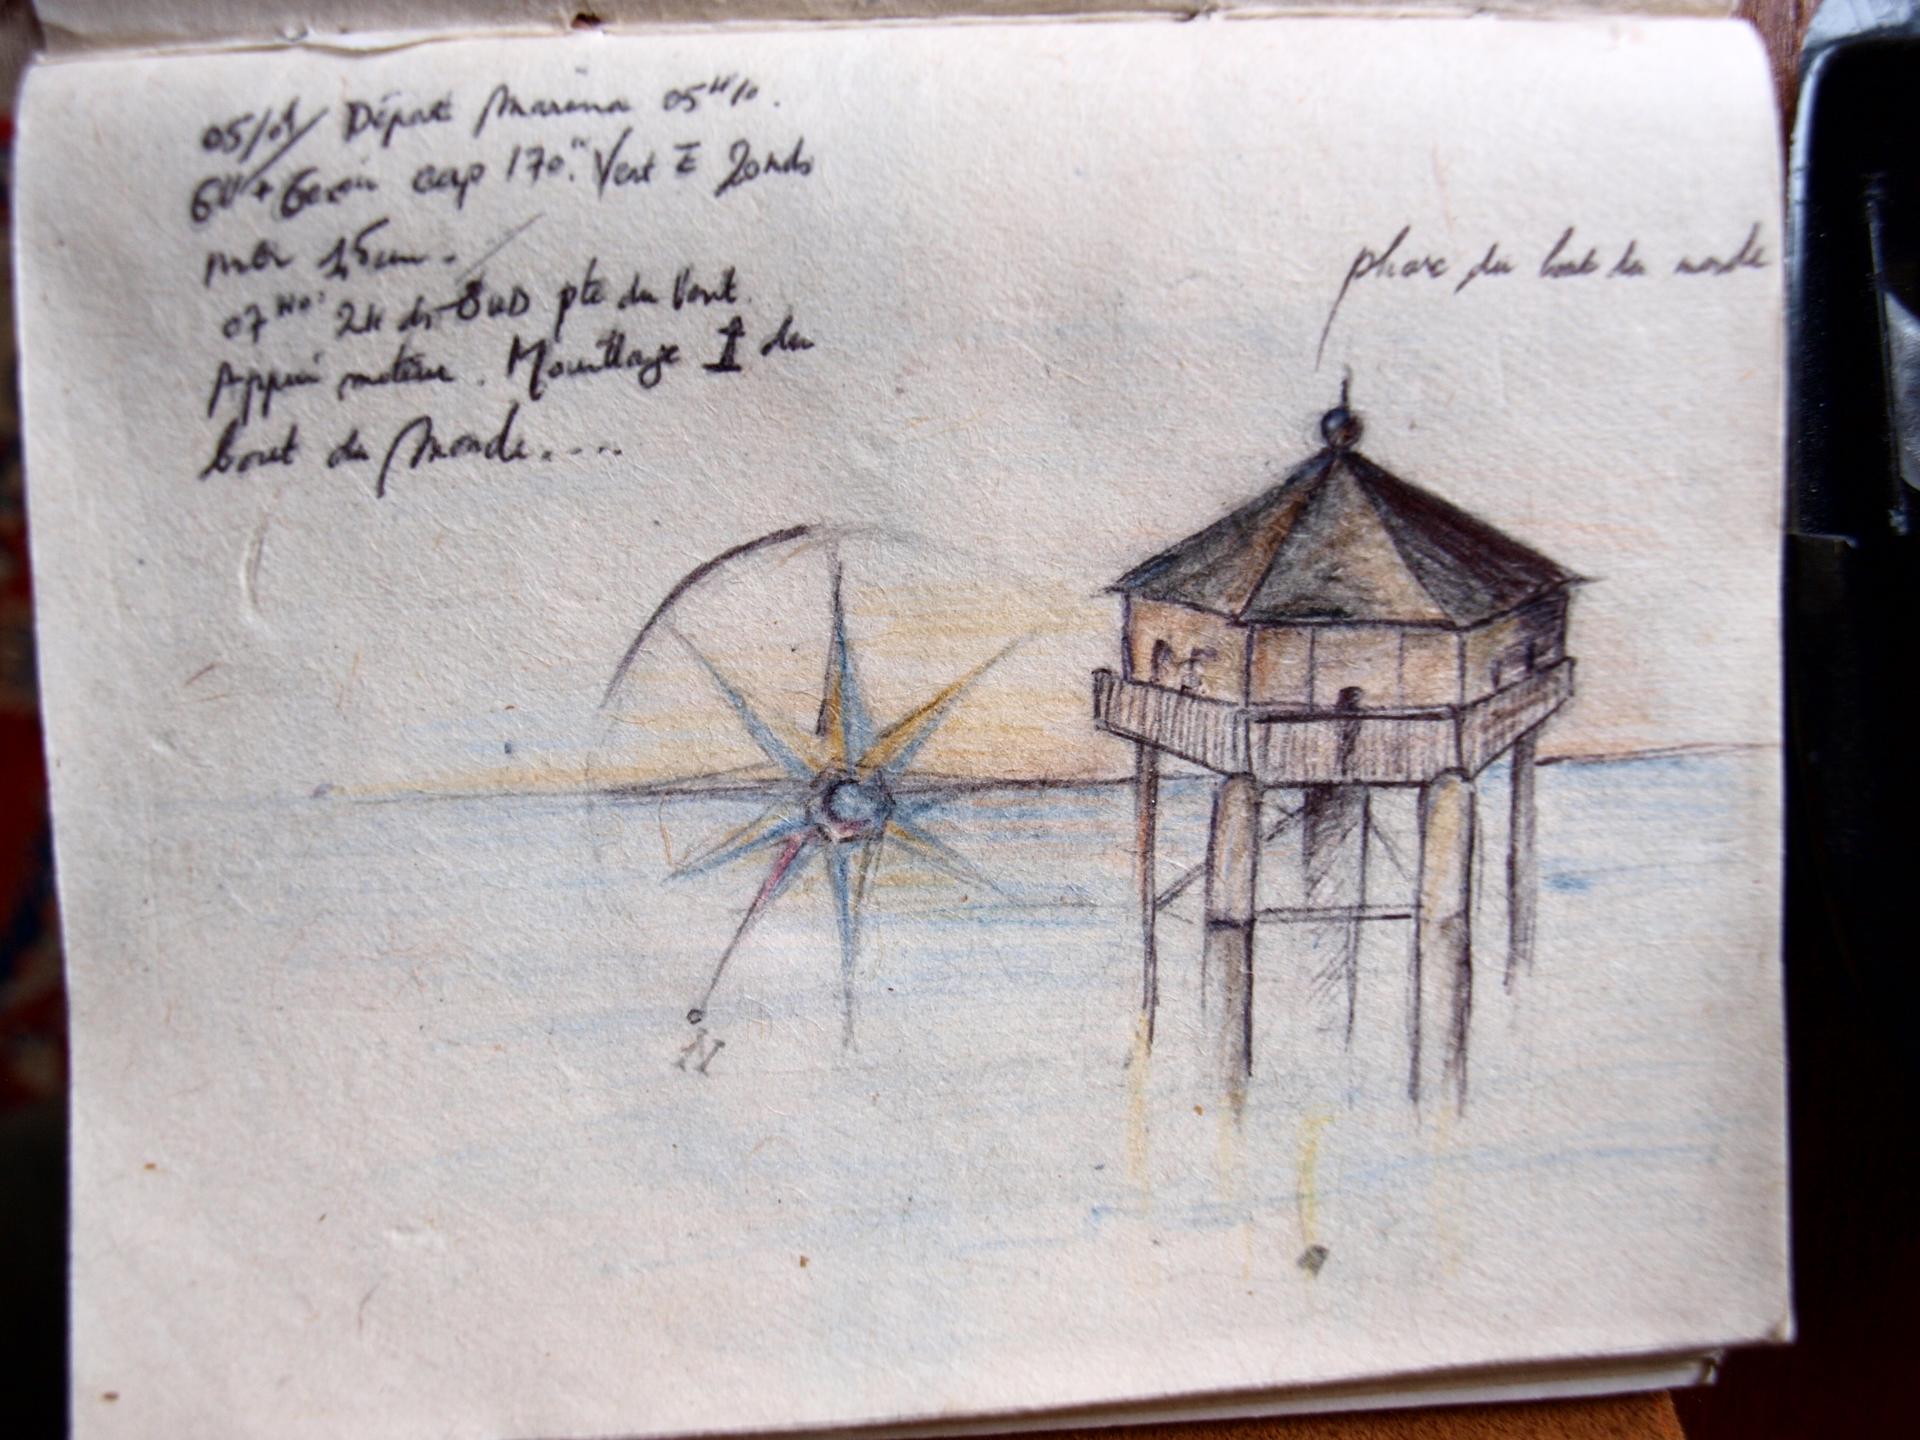 05/01/ Départ Marina 05H10.
6H + Genois cap 170°. Vent E 20nds
mer 1,5m.
07H10: 2H ds SUD pte du Vent.
Appui moteur. Mouillage du
bout du Monde.....
phare du bout du monde
N